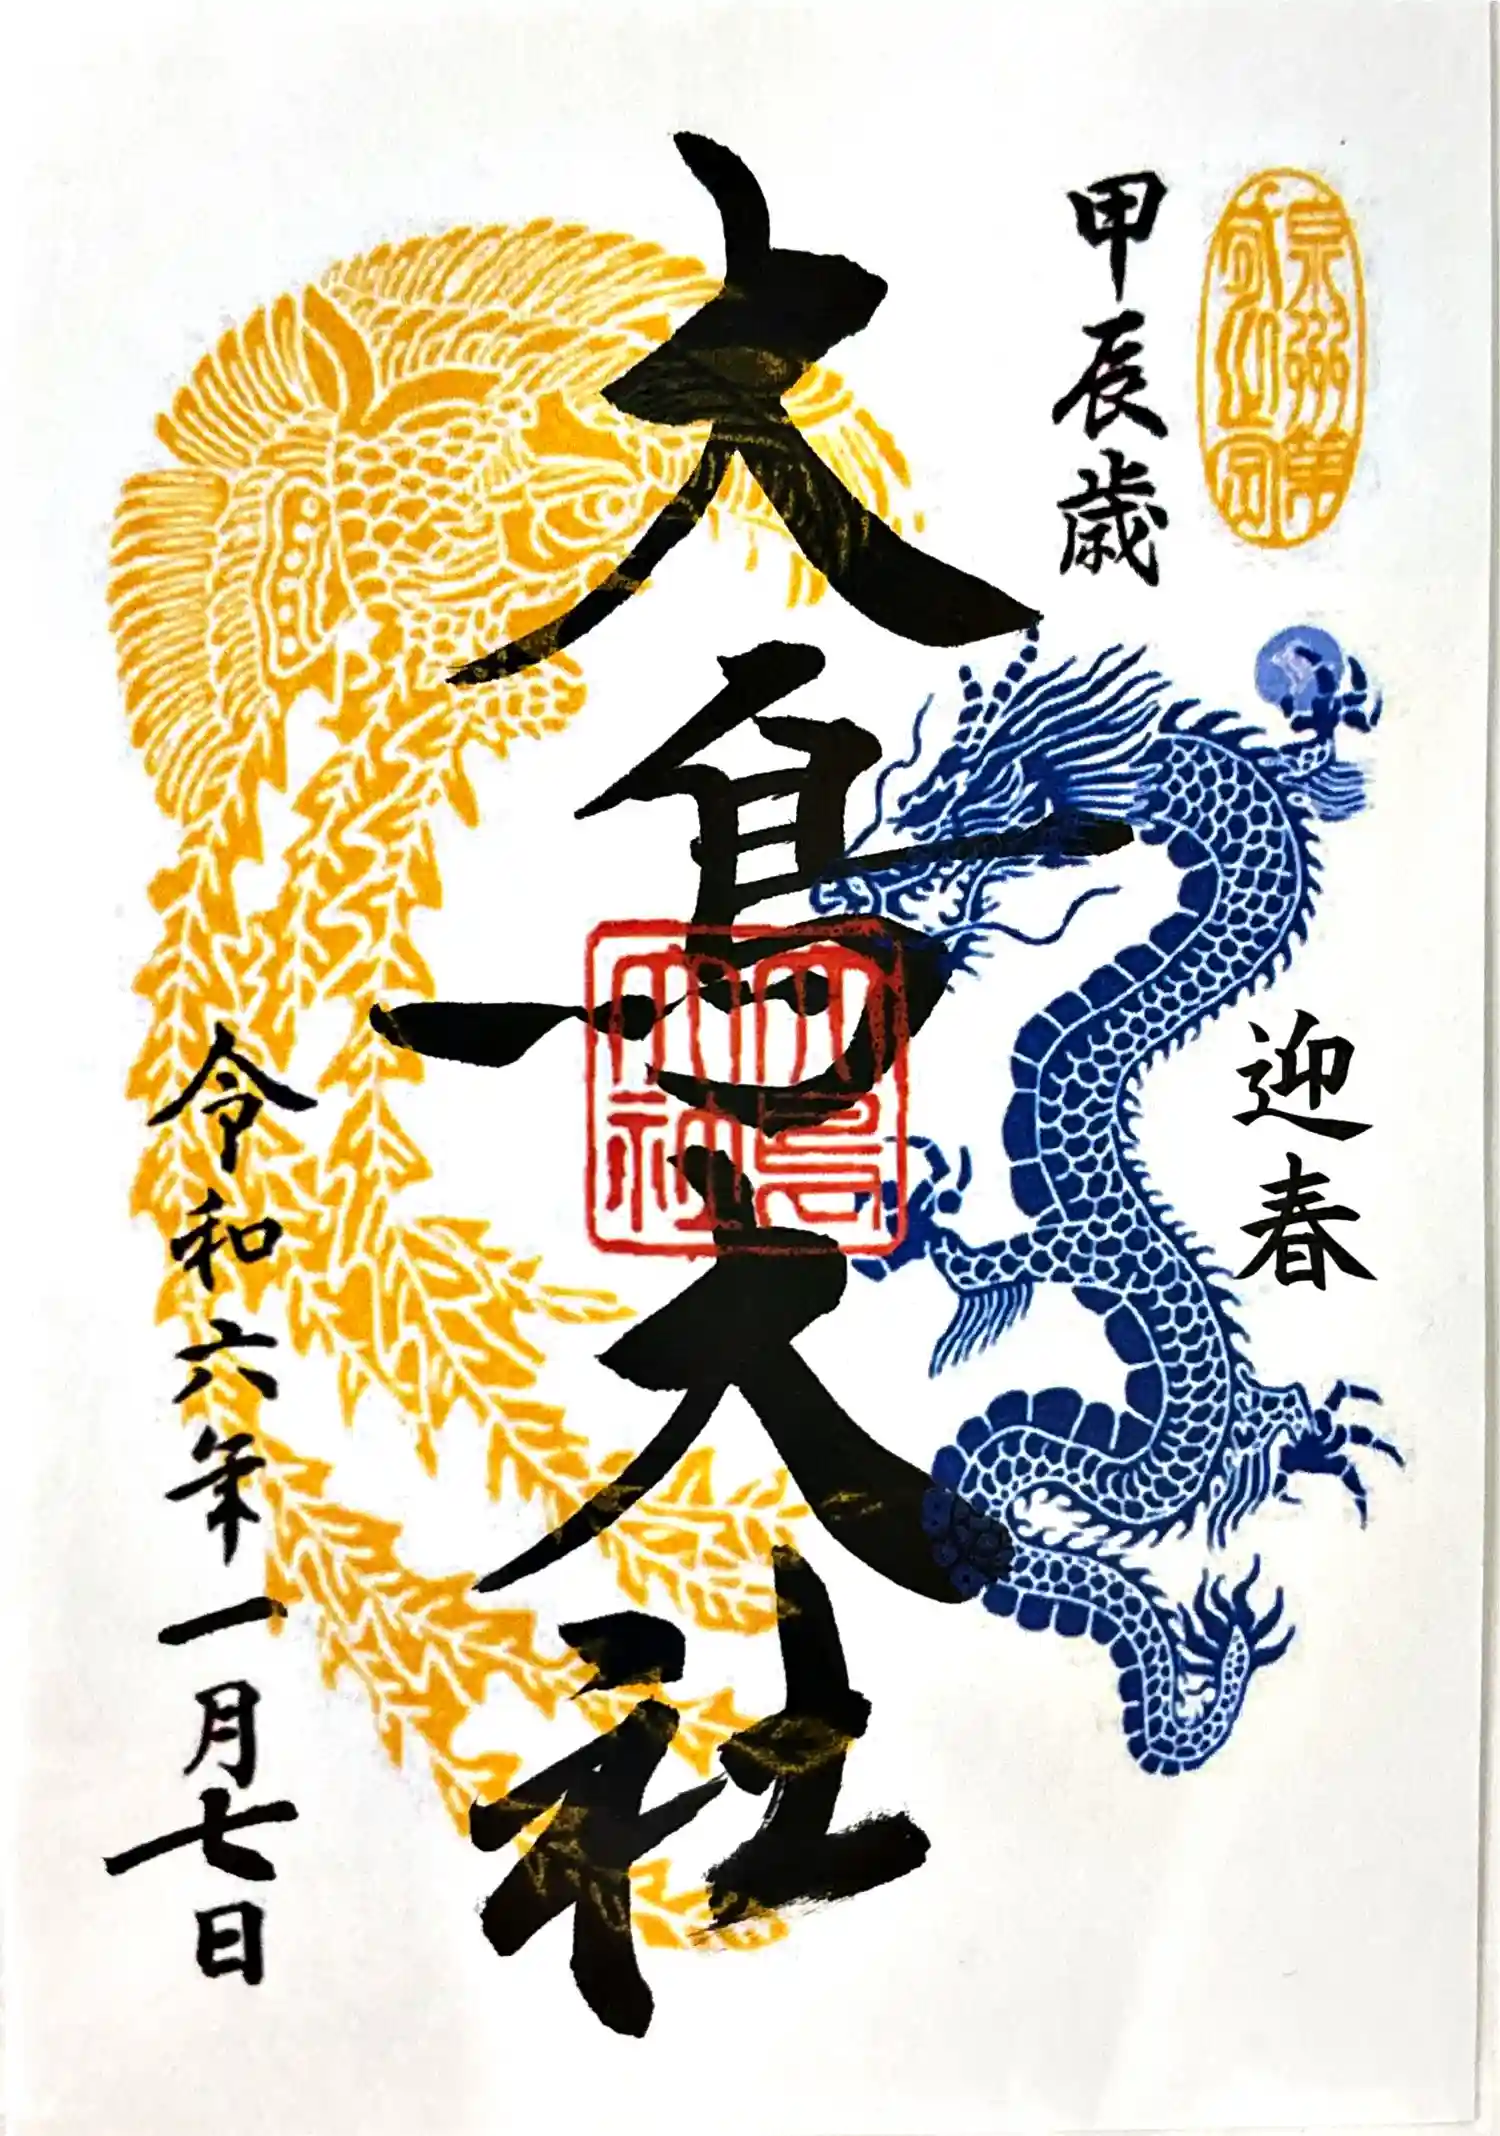 泉州第
甲辰歳
迎春
大鳥大社
大鳥
大社
令和六年一月七日